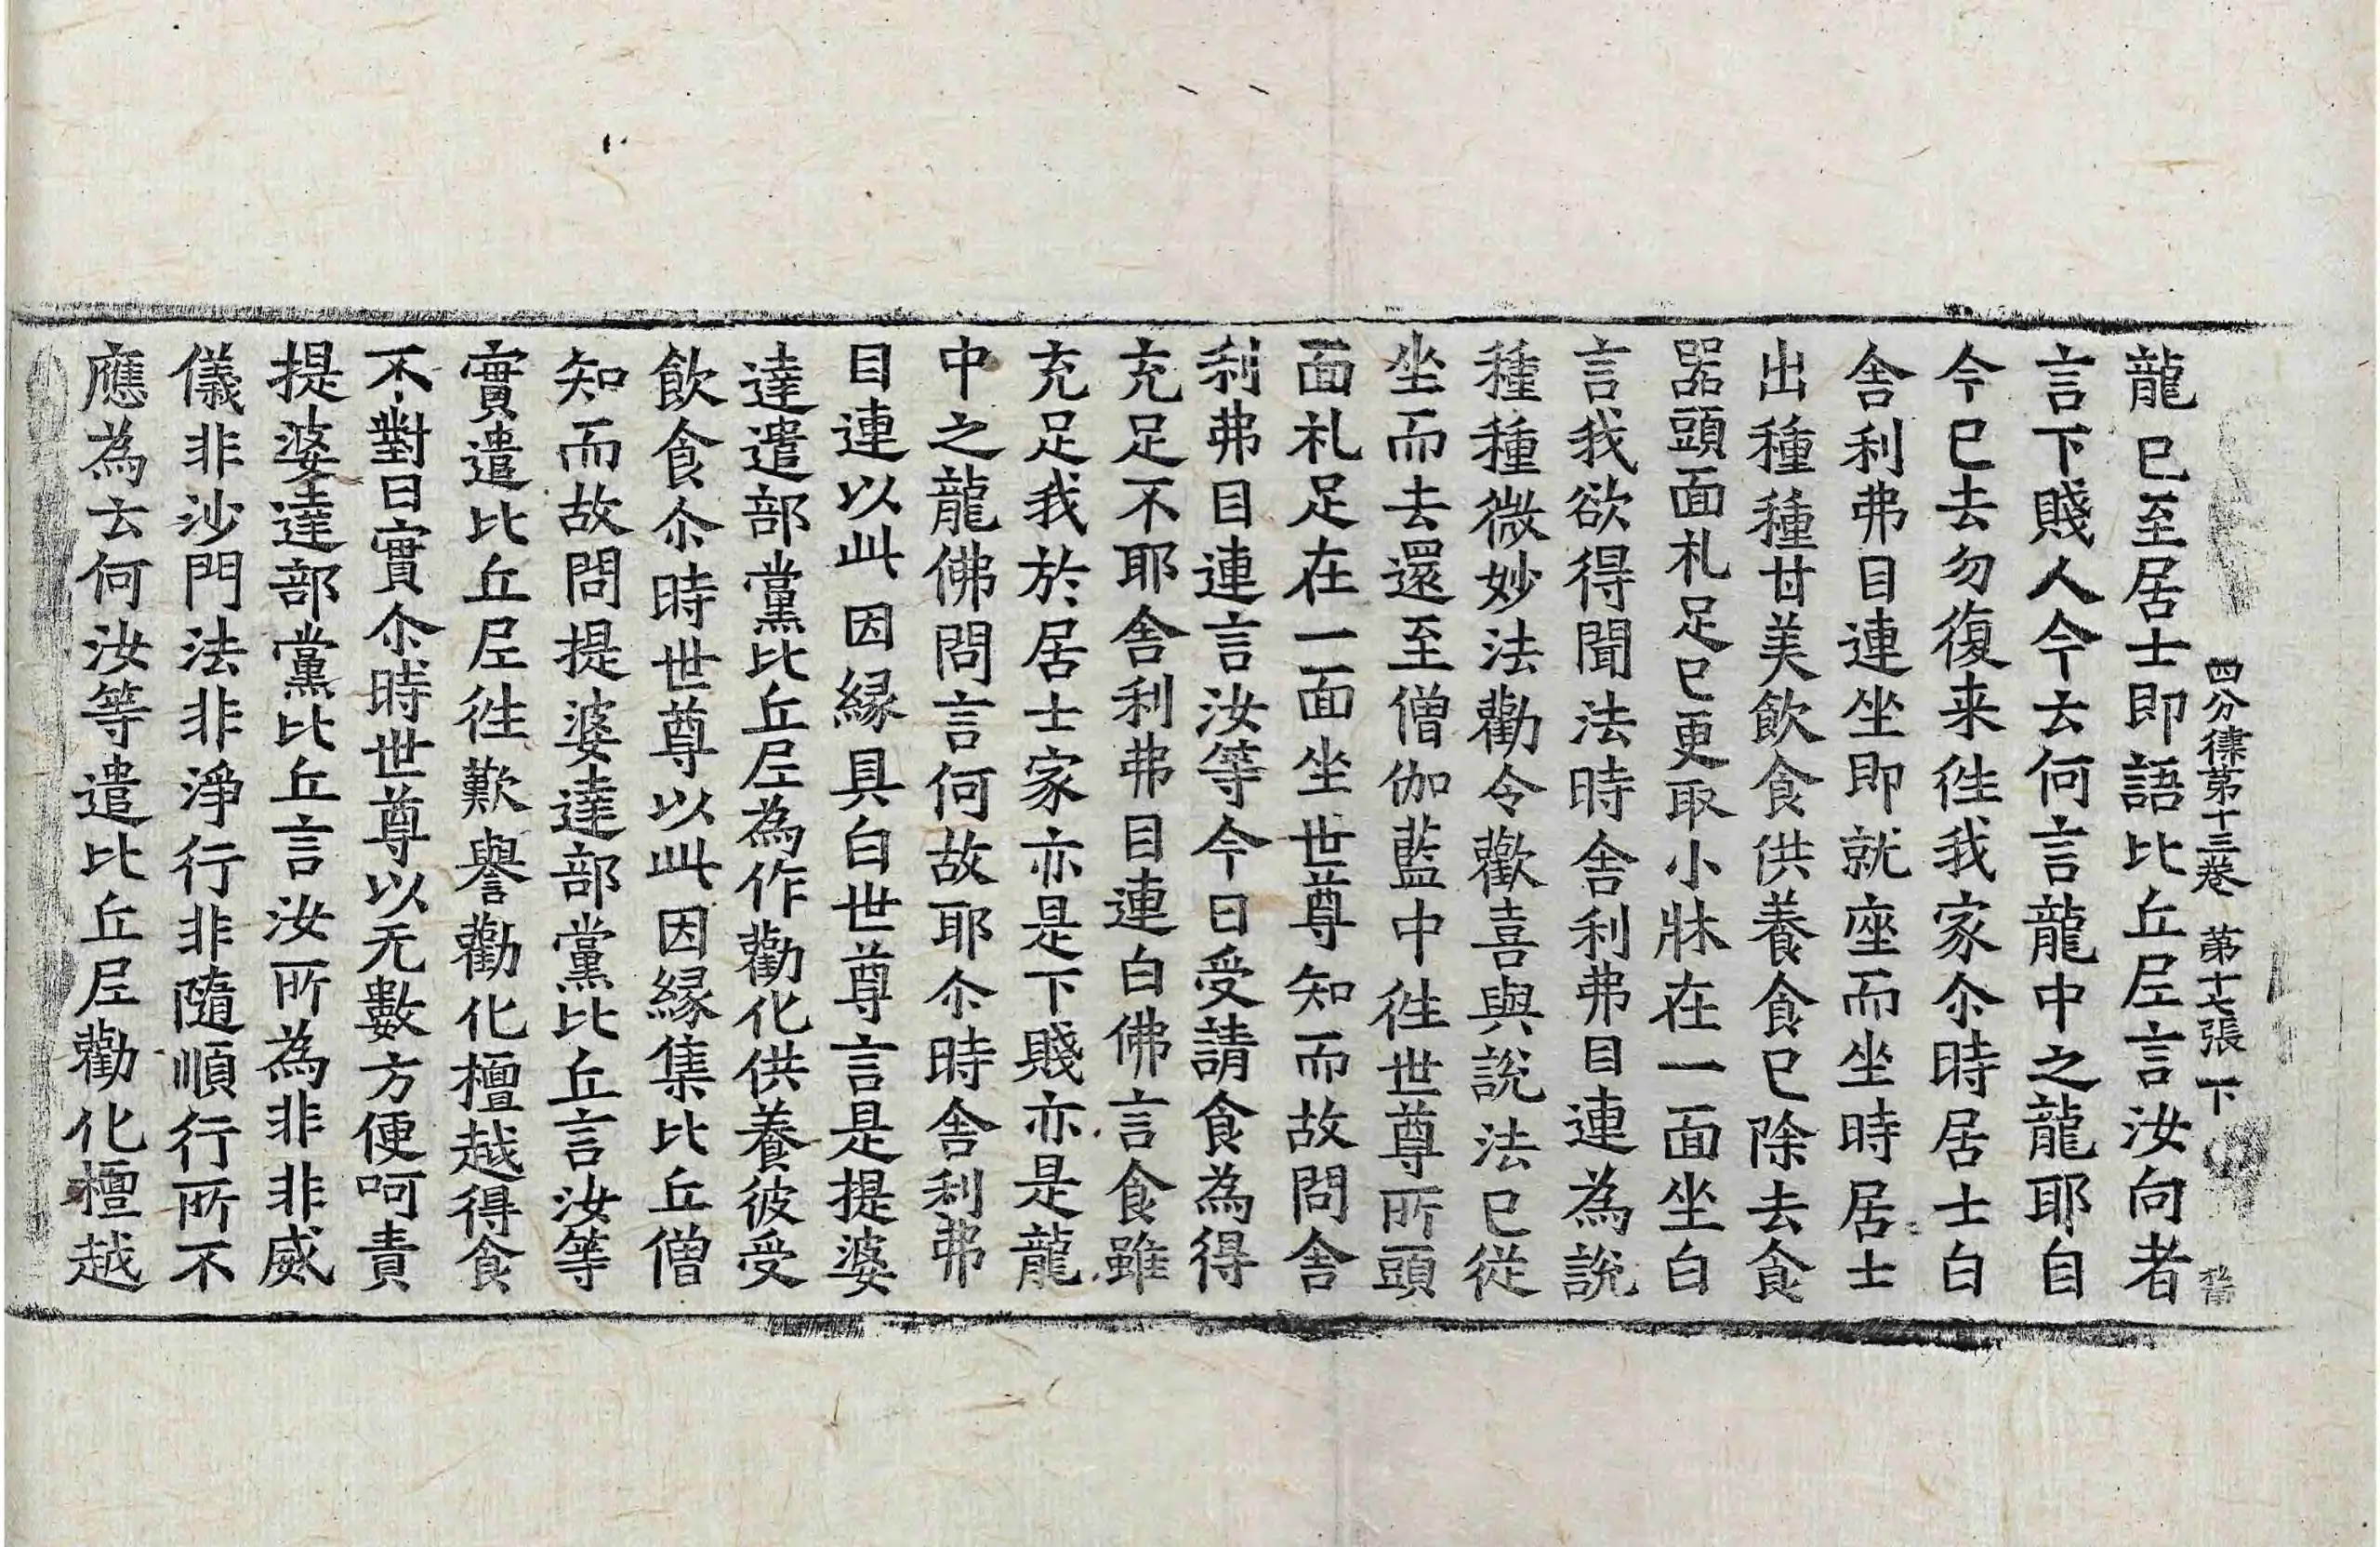 四分律第十三卷 第十七張 下
龍已至居士即語比丘尼言汝向者
言下賤人今云何言龍中之龍耶自
今已去勿復来徃我家尒時居士白
舍利弗目連坐即就座而坐時居士
出種種甘美飲食供養食已除去食
器頭面礼足已更取小牀在一面坐白
言我欲得聞法時舍利弗目連為說
種種微妙法勸令歡喜與說法已從
坐而去還至僧伽藍中徃世尊所頭
面礼足在一面坐世尊知而故問舍
利弗目連言汝等今日受請食為得
充足不耶舍利弗目連白佛言食雖
充足我於居士家亦是下賤亦是龍
中之龍佛問言何故耶尒時舍利弗
目連以此因緣具白世尊言是提婆
達遣部黨比丘尼為作勸化供養彼受
飲食尒時世尊以此因緣集比丘僧
知而故問提婆達部黨比丘言汝等
實遣比丘尼徃歎譽勸化檀越得食
不對曰實尒時世尊以无數方便呵責
提婆達部黨比丘言汝所為非非威
儀非沙門法非淨行非隨順行所不
應為云何汝等遣比丘尼勸化檀越